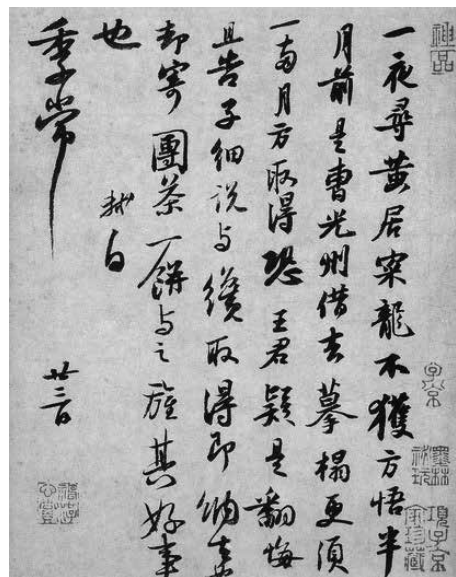 一夜尋黃居寀龍不獲方悟半
月前是曹光州借去摹榻更須
一兩月方取得恐王君疑是翻悔
且告子細說與纔取得即納去
却寄團茶一餅與之旌其好事
也
軾白
季常
廿三日
神品
子京
墨林祕玩
項子京家珍藏